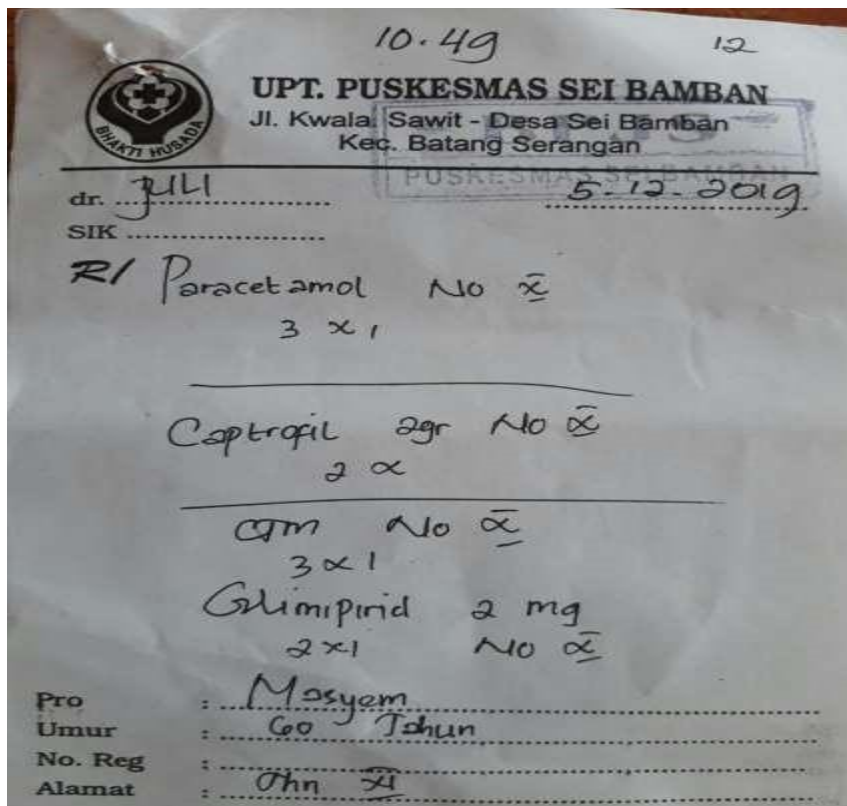 10.49 12
BHAKTI HUSADA
UPT. PUSKESMAS SEI BAMBAN
Jl. Kwala Sawit - Desa Sei Bamban
Kec. Batang Serangan
PUSKESMAS SEI BAMBAN
dr. JULI 5-12-2019
SIK
R/ Paracetamol No X
3 x 1
Captrofil 2gr No X
2 x
CTM No X
3 x 1
Glimipirid 2 mg
2 x 1 No X
Pro : Masyem
Umur : 60 Tahun
No. Reg :
Alamat : XI